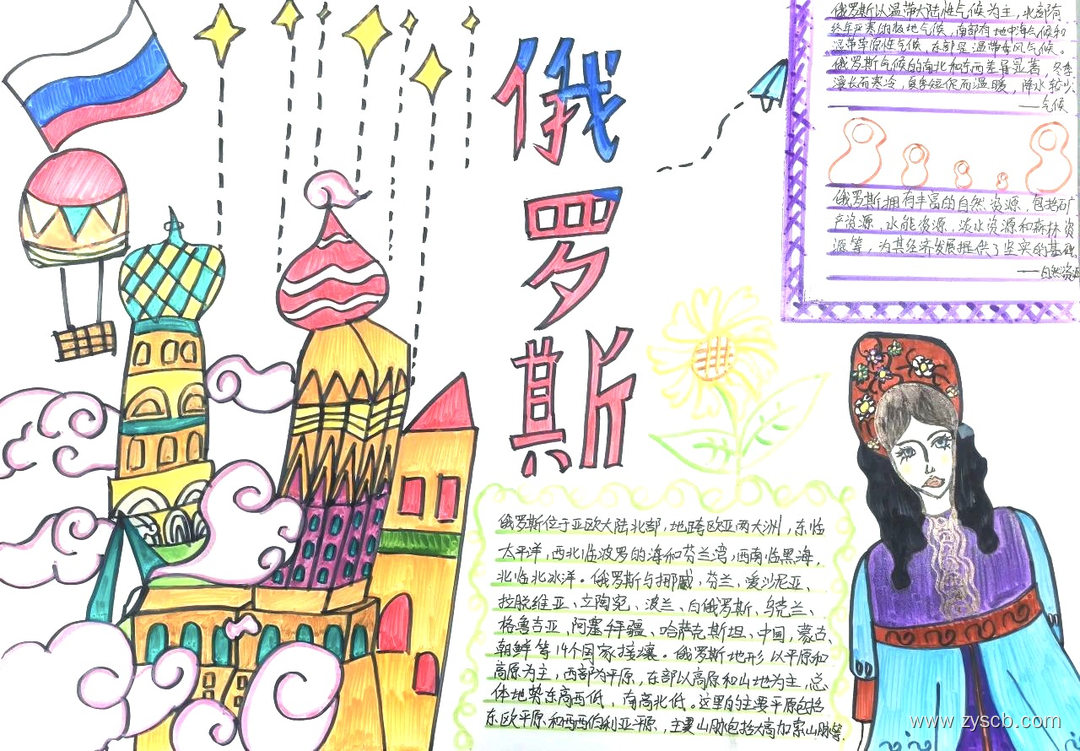 俄罗斯
俄罗斯以温带大陆性气候为主，北部有
终年严寒的极地气候，南部有地中海气候和
温带草原性气候，东部是温带季风气候。
俄罗斯气候的南北和东西差异显著，冬季
漫长而寒冷，夏季短促而温暖，降水较少
——气候
俄罗斯拥有丰富的自然资源，包括矿
产资源、水能资源、淡水资源和森林资
源等，为其经济发展提供了坚实的基础
——自然资源
俄罗斯位于亚欧大陆北部，地跨欧亚两大洲，东临
太平洋，西北临波罗的海和芬兰湾，西南临黑海，
北临北冰洋。俄罗斯与挪威、芬兰、爱沙尼亚、
拉脱维亚、立陶宛、波兰、白俄罗斯、乌克兰、
格鲁吉亚、阿塞拜疆、哈萨克斯坦、中国，蒙古、
朝鲜等14个国家接壤。俄罗斯地形以平原和
高原为主，西部为平原，在部以高原和山地为主，总
体地势东高西低，南高北低。这里的主要平原包括
东欧平原和西西伯利亚平原，主要山脉包括大高加索山脉等
www.zyscb.com